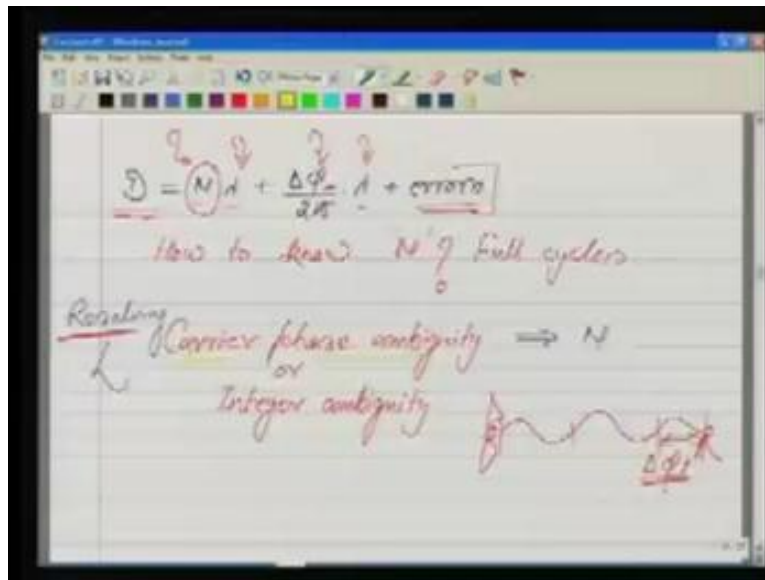 D = N λ + Δφ/2π · λ + errors
How to know N ? Full cycles
Resolving Carrier phase ambiguity ⇒ N
or
Integer ambiguity
Δφ